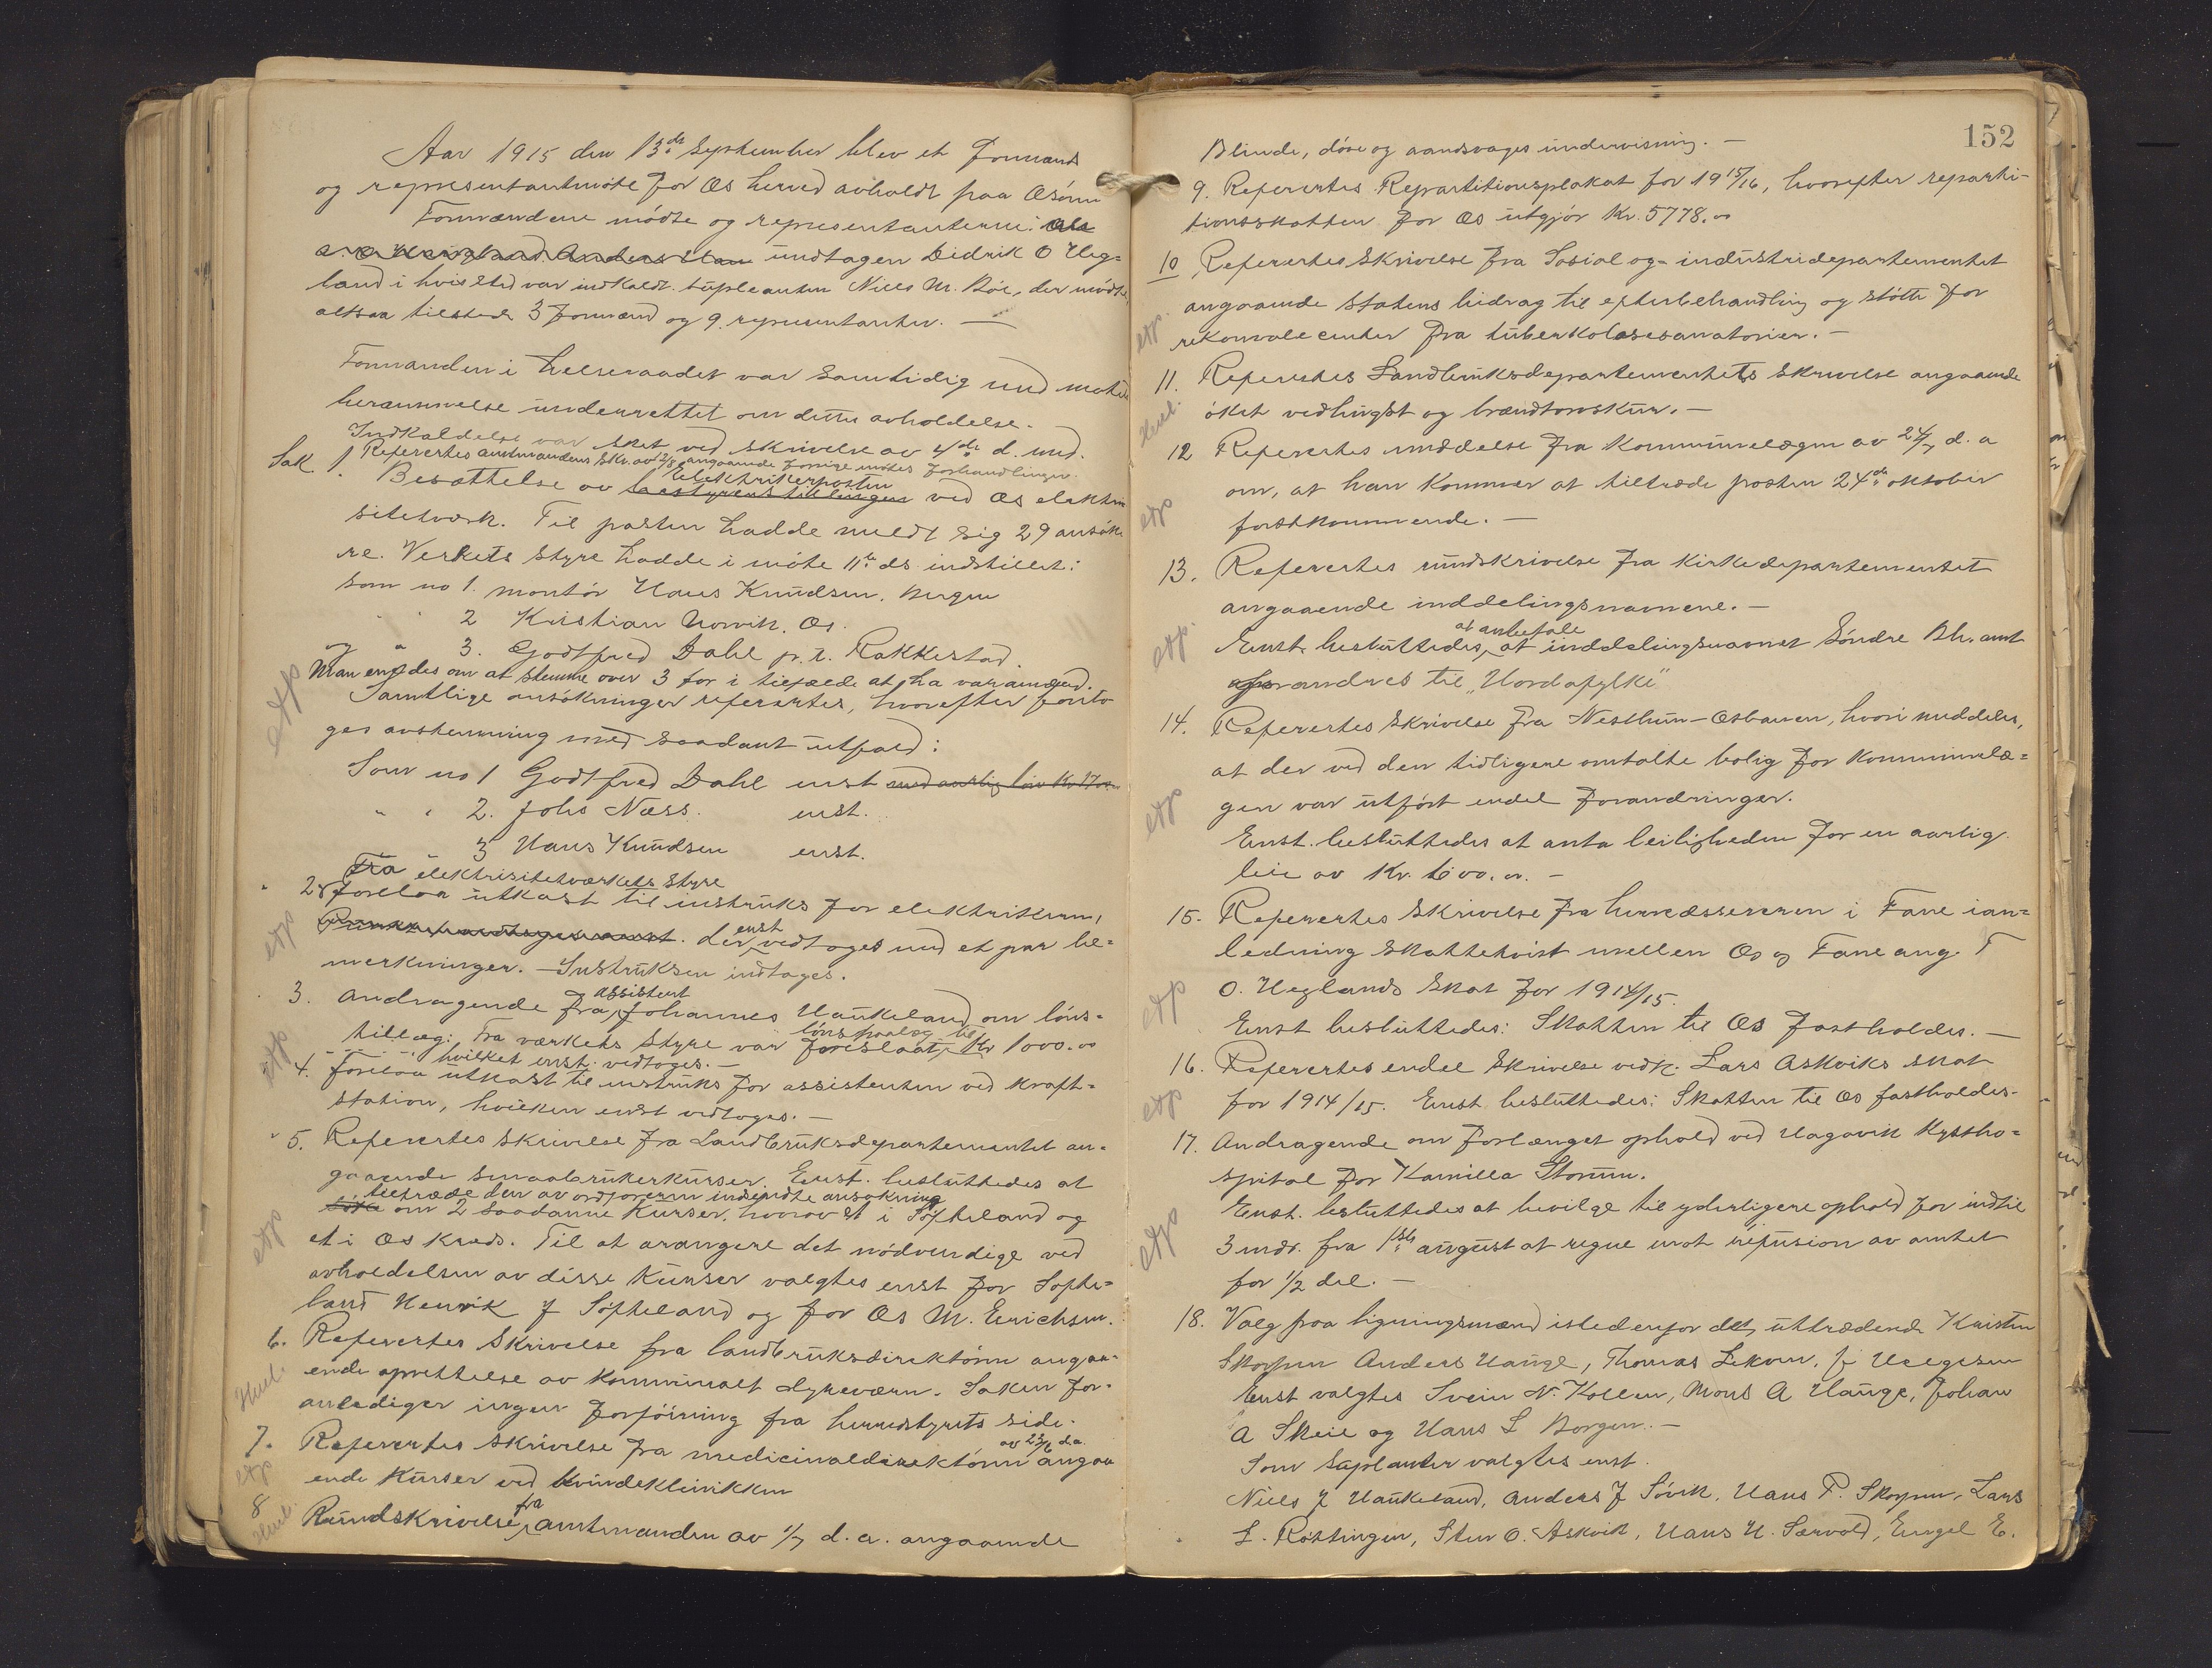 Aar 1915 den 13de September blev et formands
og representantmöte for Os herred avholdt paa Osören
Formændene mödte og representanterne:
undtagen Didrik O Heg=
land i hvis sted var indkaldt supleanten Niels M. Böe, der mödte
altsaa tilstede 3 formænd og 9. representanter. —
Formanden i helseraadet var samtidig med möte
berammelse underrettet om dette avholdelse.
Indkaldelse var sket ved skrivelse av 4de d. md.
Refertes amtmandens skr. av 2/8 angaaende forrige mötes forhandlinger.
Sak 1. Besættelse av elektrikerposten ved Os elektri
sitetværk. Til posten hadde meldt sig 29 ansök
re. Verkets styre hadde i möte 11te ds indstillet:
som no 1. montör Hans Knudsen, Bergen
" 2 Kristian Norvik, Os.
og " 3. Godtfred Dahl p.t. Rakkestad.
Man enedes om at stemme over 3 for i tilfælde at ha varamænd.
Samtlige ansökninger refertes, hvorefter foreto
ges avstemning med saadant utfald:
Som no 1 Godtfred Dahl enst
" " 2. Johs Næss. enst.
3 Hans Knudsen enst.
Fra elektrisitetværkets styre
2. forelaa utkast til instruks for elektrikeren,
der enst vedtoges med et par be=
merkninger. — Instruksen indtages.
3. Andragende fra assistent Johannes Haukeland om löns=
tillæg: Fra værkets styre var foreslaat lönspaalæg til Kr 1000.00
hvilket enst. vedtoges. —
4. Forelaa utkast til instruks for assistenten ved kraft=
station, hvilken enst vedtoges. —
5. Refertes skrivelse fra Landbruksdepartementet an=
gaaende smaabrukerkurser. Enst. besluttedes at
tiltræde den av ordföreren indsendte ansökning
om 2 saadanne kurser, hvorav et i Söfteland og
et i Os kreds. Til at arangere det nödvendige ved
avholdelsen av disse kurser valgtes enst for Söfte=
land Henrik J Söfteland og for Os M. Erichsen.
6. Refertes skrivelse fra landbruksdirektören angaa=
ende oprettelse av kommunalt dyreværn. Saken for=
anlediger ingen forföining fra herredstyrets side.
7. Refertes skrivelse fra medicinaldirektören av 23/6 d.a. angaa
ende kurser ved kvindeklinikken
8 Rundskrivelse fra amtmanden av 1/7 d.a. angaaende
152
Blinde, döve og aandsvages undervisning. —
9. Refertes Repartitionsplakat for 1915/16, hvorefter reparti=
tionsskatten for Os utgjör Kr. 5778.00
10 Refertes skrivelse fra Sosial og- industridepartementet
angaaende statens bidrag til efterbehandling og stötte for
rekonvalecenter fra tuberkolosesanatorier. —
11. Refertes Landbruksdepartementets skrivelse angaaende
öket vedhugst og brændtorvskur. —
12 Refertes meddelse fra kommunelægen av 24/7 d. a
om, at han kommer at tiltræde posten 24de oktober
förstkommende. —
13. Refertes rundskrivelse fra kirkedepartementet
angaaende inddelingsnavnene. —
Enst. besluttedes, at anbefale at inddelingsnavnet Söndre Bh. amt
forandres til "Hordafylke"
14. Refertes skrivelse fra Nesttun-Osbanen, hvori meddeles,
at der ved den tidligere omtalte bolig for kommunelæ=
gen var utfört endel forandringer.
Enst. besluttedes at anta leiligheden for en aarlig
leie av Kr. 600.00. —
15. Refertes skrivelse fra herredsskriveren i Fane i an=
ledning skattetvist mellem Os og Fane ang. T
O. Heglands skat for 1914/15.
Enst besluttedes: Skatten til Os fastholdes. —
16. Refertes endel skrivelse vedk. Lars Askviks skat
for 1914/15. Enst. besluttedes: Skatten til Os fastholdes.
17. Andragende om forlænget ophold ved Hagavik kystho=
spital for Kamilla Storum.
Enst. besluttedes at bevilge til yderligere ophold for indtil
3 mdr. fra 1ste august at regne mot refusion av amtet
for 1/2 del. —
18. Valg paa ligningsmænd istedenfor de uttrædende Kristen
Skorpen Anders Hauge, Thomas Lekven, J Helgesen
Enst valgtes Svein N. Kollen, Mons A Hauge, Johan
A Skeie og Hans L Borgen. —
Som suplanter valgtes enst.
Niels J Haukeland, Anders J Sövik, Hans P. Skorpen, Lars
L. Röttingen, Sten O. Askvik, Hans H. Særvold, Engel E.